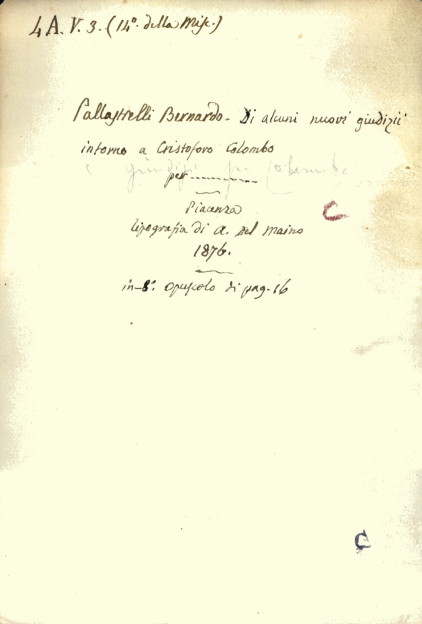 4 A. V. 3. (14º. della Misc.)
Pallastrelli Bernardo - Di alcuni nuovi giudizii
intorno a Cristoforo Colombo
giudizi Colombo
per ............
Piacenza
C
tipografia di A. Del Maino
1876.
in-8º. opuscolo di pag. 16
C